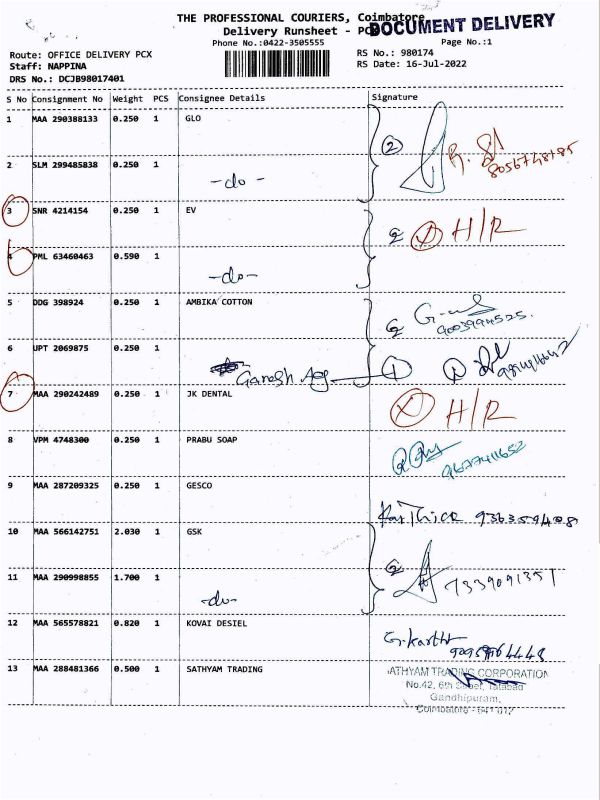 THE PROFESSIONAL COURIERS, Coimbatore
DOCUMENT DELIVERY
Delivery Runsheet - PCX
Phone No.:0422-3505555
Page No.:1
Route: OFFICE DELIVERY PCX
RS No.: 980174
Staff: NAPPINA
RS Date: 16-Jul-2022
DRS No.: DCJB98017401
S No Consignment No Weight PCS Consignee Details Signature
1 MAA 290388133 0.250 1 GLO
2
8056748185
2 SLM 299485838 0.250 1
-do-
3 SNR 4214154 0.250 1 EV
2 X H/R
4 PML 63460463 0.590 1
-do-
5 DDG 398924 0.250 1 AMBIKA COTTON
9003994525
6 UPT 2069875 0.250 1
Ganesh Agg 1
7 MAA 290242489 0.250 1 JK DENTAL
X H/R
8 VPM 4748300 0.250 1 PRABU SOAP
9677411652
9 MAA 287209325 0.250 1 GESCO
Karthick 9363594081
10 MAA 566142751 2.030 1 GSK
2
7339091351
11 MAA 290998855 1.700 1
-do-
12 MAA 565578821 0.820 1 KOVAI DESIEL
G.Karthi
13 MAA 288481366 0.500 1 SATHYAM TRADING
SATHYAM TRADING CORPORATION
No.42, 6th Street, Tatabad
Gandhipuram,
Coimbatore - 641 012